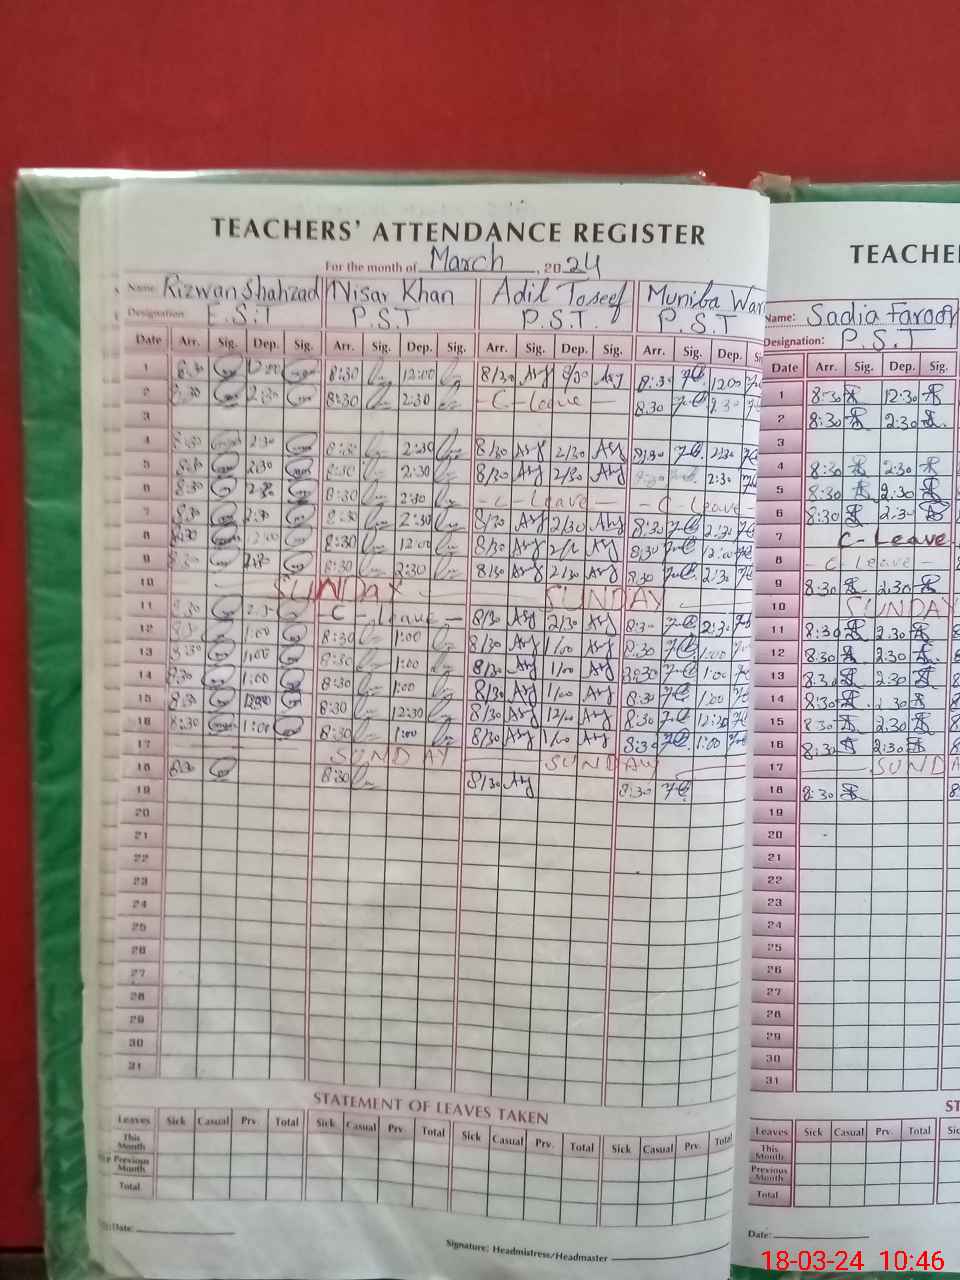 TEACHERS' ATTENDANCE REGISTER
For the month of March, 2024
Name: Rizwan Shahzad Nisar Khan Adil Toseef Muniba War
Designation E.S.T P.S.T P.S.T. P.S.T
Date Arr. Sig. Dep. Sig. Arr. Sig. Dep. Sig. Arr. Sig. Dep. Sig. Arr. Sig. Dep. Si
1 8:30 12:00 8:30 12:00 8/30 8:30 12:00
2 8:30 2:30 8:30 2:30 -C-Leave- 8:30 2:30
3
4 8:30 2:30 8:30 2:30 8/30 2/30 8:30 2:30
5 8:30 2:30 8:30 2:30 8/30 2/30 2:30
6 8:30 2:30 8:30 2:30 -C-Leave- -C-Leave-
7 8:30 2:30 8:30 2:30 8/30 2/30 8:30 2:30
8 8:30 12:00 8:30 12:00 8/30 8:30 12:00
9 8:30 2:30 8:30 2:30 8/30 2/30 8:30 2:30
10 SUNDAY SUNDAY
11 8:30 2:30 -C-Leave- 8/30 2/30 8:30 2:30
12 8:30 1:00 8:30 1:00 8/30 1/00 8:30 1:00
13 8:30 1:00 8:30 1:00 8/30 1/00 8:30 1:00
14 8:30 1:00 8:30 1:00 8/30 1/00 8:30 1:00
15 8:30 8:30 12:30 8/30 12/00 8:30
16 8:30 1:00 8:30 1:00 8/30 1/00 8:30 1:00
17 SUNDAY SUNDAY
18 8:30 8:30 8/30 8:30
19
20
21
22
23
24
25
26
27
28
29
30
31
STATEMENT OF LEAVES TAKEN
Leaves Sick Casual Prv. Total Sick Casual Prv. Total Sick Casual Prv. Total Sick Casual Prv. Total
This Month
Previous Month
Total
Date:
Signature: Headmistress/Headmaster
TEACHE
Name: Sadia Farooq
Designation: P.S.T
Date Arr. Sig. Dep. Sig.
1 8:30 12:30
2 8:30 2:30
3
4 8:30 2:30
5 8:30 2:30
6 8:30 2:30
7 C-Leave
8 -C-Leave-
9 8:30 2:30
10 SUNDAY
11 8:30 2:30
12 8:30 2:30
13 8:30 2:30
14 8:30 2:30
15 8:30 2:30
16 8:30 2:30
17 SUNDA
18 8:30
19
20
21
22
23
24
25
26
27
28
29
30
31
ST
Leaves Sick Casual Prv. Total Sic
This Month
Previous Month
Total
Date:
18-03-24 10:46